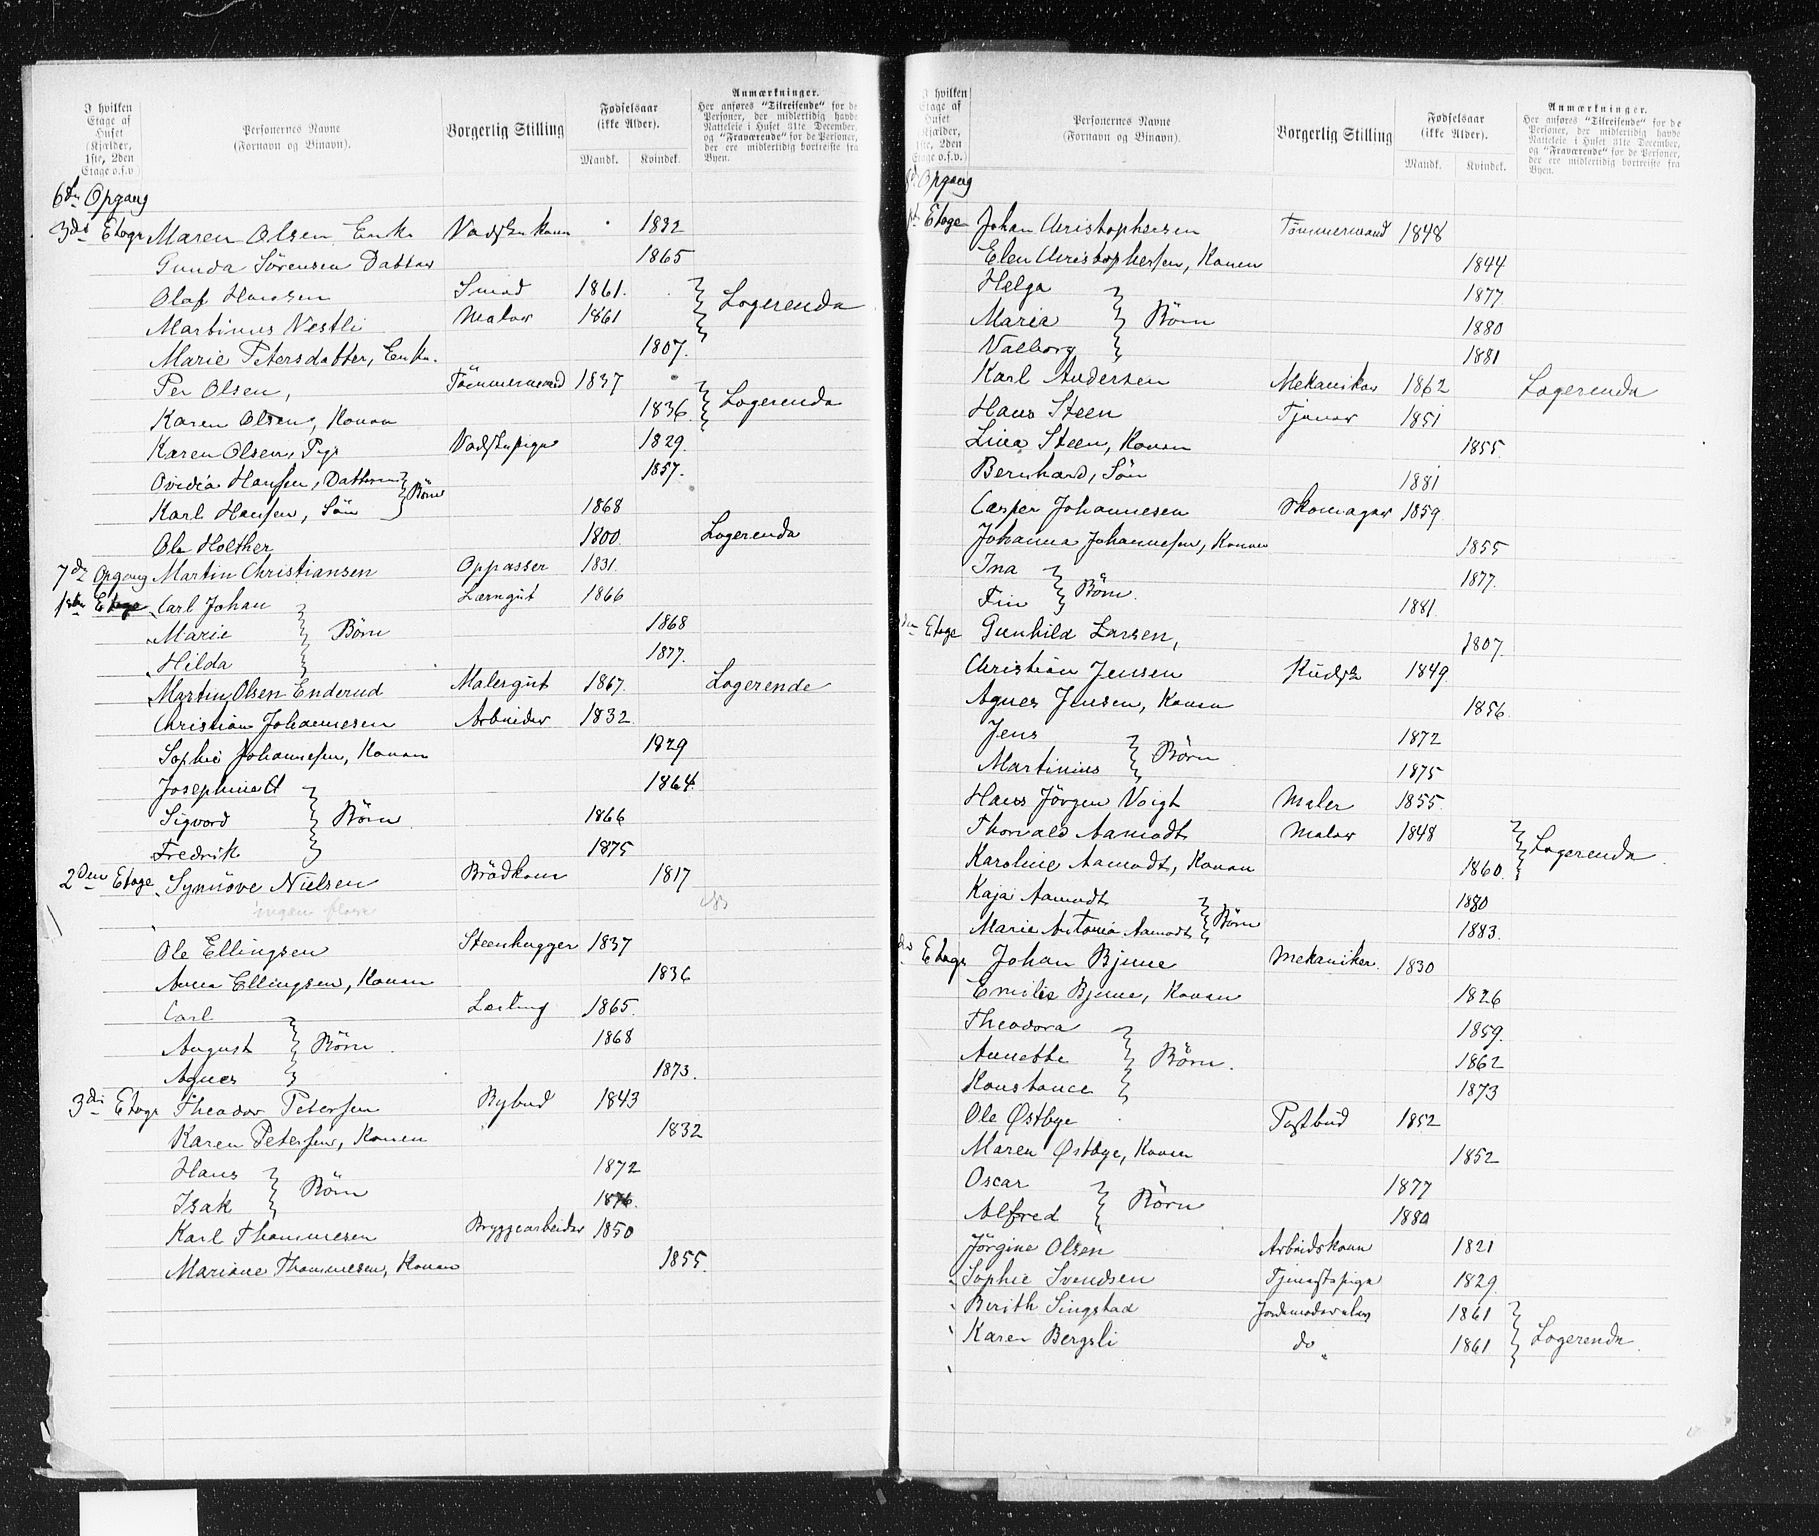 I hvilken Etage af Huset (Kjælder, 1ste, 2den Etage o.s.v)
Personernes Navne (Fornavn og Binavn).
Borgerlig Stilling
Fødselsaar (ikke Alder).
Mandk. Kvindek.
Anmærkninger.
Her anføres "Tilreisende" for de Personer, der midlertidig havde Natteleie i Huset 31te December, og "Fraværende" for de Personer, der ere midlertidig bortreiste fra Byen.
6te Opgang
3die Etage Maren Olsen Enke 1832
Gunda Sörensen Datter 1865
Olaf Hansen Smed 1861. Logerende
Martinus Nestli Maler 1861
Marie Petersdatter, Enke. 1807.
Per Olsen, Tömmermand 1837 Logerende
Karen Olsen, Konen 1836
Karen Olsen, Pige 1829
Ovidia Hansen, Datteren Börn 1857.
Karl Hansen, Sön 1868
Ole Holther 1800. Logerende
7de Opgang Martin Christiansen Oppasser 1831.
1ste Etage Carl Johan Læregut 1866
Marie Börn 1868
Hilda 1877.
Martin Olsen Enderud Malergut 1867. Logerende
Christian Johannesen Arbeider 1832.
Sophie Johannesen, Konen 1829
Josephine 1864
Sigvord Börn 1866
Fredrik 1875
2den Etage Synnöve Nielsen Brödkone 1817
ingen flere
Ole Ellingsen Steenhugger 1837
Anna Ellingsen, Konen 1836
Carl Lærling 1865.
August Börn 1868
Agnes 1873.
3die Etage Theodor Petersen Bybud 1843
Karen Petersen, Konen 1832
Hans 1872
Isak Börn 1876.
Karl Thommesen Bryggearbeider 1850
Mariane Thommesen, Konen 1855.
I hvilken Etage af Huset (Kjælder, 1ste, 2den Etage o.s.v.)
Personernes Navne (Fornavn og Binavn).
Borgerlig Stilling
Fødselsaar (ikke Alder).
Mandk. Kvindek.
Anmærkninger.
Her anføres "Tilreisende" for de Personer, der midlertidig havde Natteleie i Huset 31te December, og "Fraværende" for de Personer, der ere midlertidig bortreiste fra Byen.
Opgang
Etage Johan Christophersen Tömmermand 1848
Elen Christophersen, Konen 1844
Helga 1877
Maria Börn 1880
Valborg 1881
Karl Andersen Mekaniker 1862 Logerende
Hans Steen Tjener 1851
Lina Steen, Konen 1855.
Bernhard, Sön 1881
Casper Johannesen Skomager 1859.
Johanna Johannesen, Konen 1855
Ina 1877.
Fin Börn. 1881.
Etage Gunhild Larsen, 1807.
Christian Jensen Kudsk 1849.
Agnes Jensen, Konen 1856.
Jens 1872
Martinius Börn 1875
Hans Jörgen Voigt Maler 1855.
Thorvald Aamodt Maler 1848 Logerende
Karoline Aamodt, Konen 1860.
Kaja Aamodt 1880
Marie Antonia Aamodt Börn 1883.
Etage Johan Bjune Mekaniker. 1830
Emilie Bjune, Konen 1826
Theodora 1859.
Annette Börn. 1862
Konstance 1873
Ole Østbye Postbud 1852
Maren Østbye, Konen 1852
Oscar 1877
Alfred Börn 1880
Jörgine Olsen Arbeidskone 1821
Sophie Svendsen Tjenestepige 1829.
Berith Singstad Jordemoderelev 1861
Karen Bergsli do 1861 Logerende.